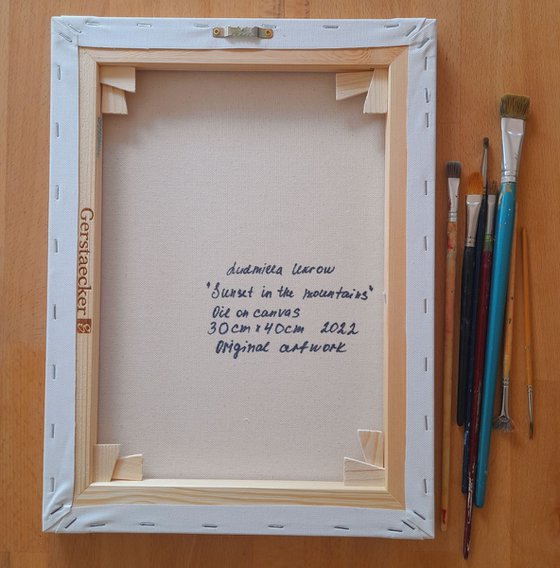 Gerstaecker
Ludmilla Ukrow
"Sunset in the mountains"
Oil on canvas
30cm x 40cm 2022
Original artwork